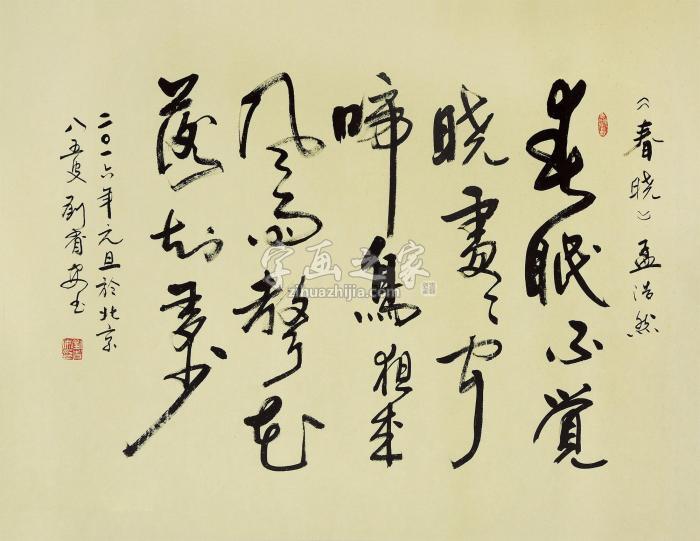 《春晓》孟浩然
春眠不覺
晓處々闻
啼鳥夜来
风雨聲花
落知多少
二〇一六年元旦於北京
八五叟刘书
字画之家
zihuazhijia.com